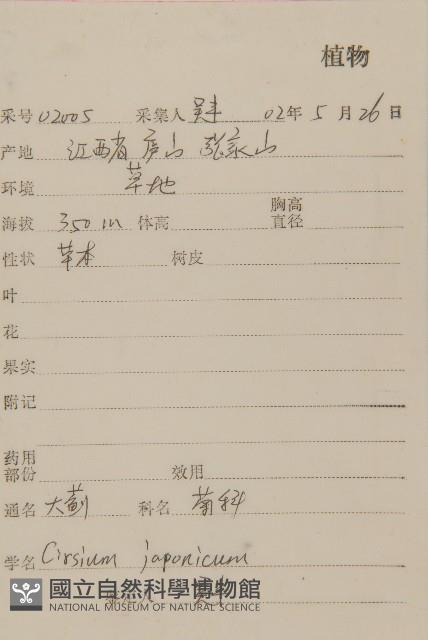 植物
采号 02005 采集人 02年 5 月 26 日
产地 江西省 庐山 张家山
环境 草地
海拔 350 m 体高 胸高直径
性状 草本 树皮
叶
花
果实
附记
药用部份 效用
通名 大蓟 科名 菊科
学名 Cirsium japonicum
國立自然科學博物館
NATIONAL MUSEUM OF NATURAL SCIENCE